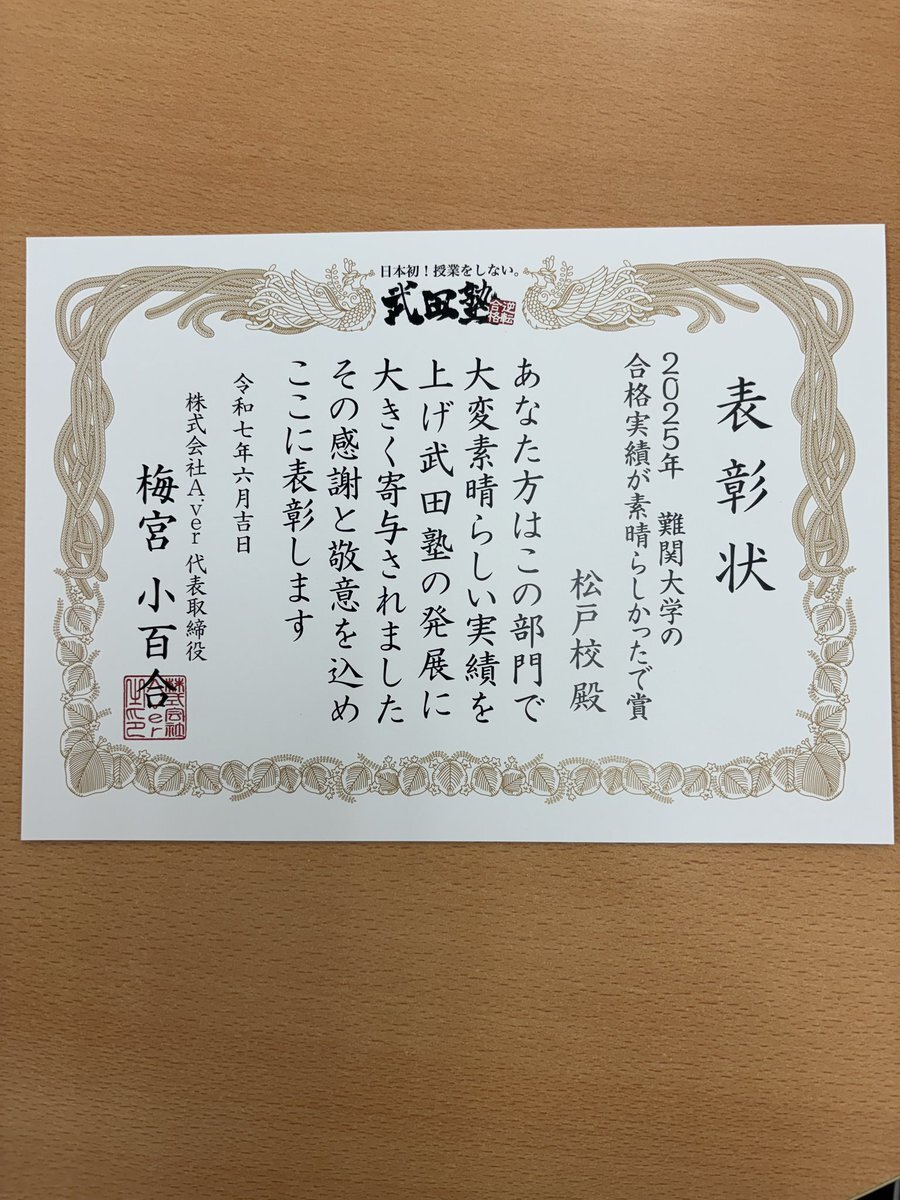 日本初！授業をしない。
武田塾
逆転
合格
表彰状
2025年 難関大学の
合格実績が素晴らしかったで賞
松戸校 殿
あなた方はこの部門で
大変素晴らしい実績を
上げ武田塾の発展に
大きく寄与されました
その感謝と敬意を込め
ここに表彰します
令和七年六月吉日
株式会社A.ver 代表取締役
梅宮 小百合
株式会社
A.ver
之印